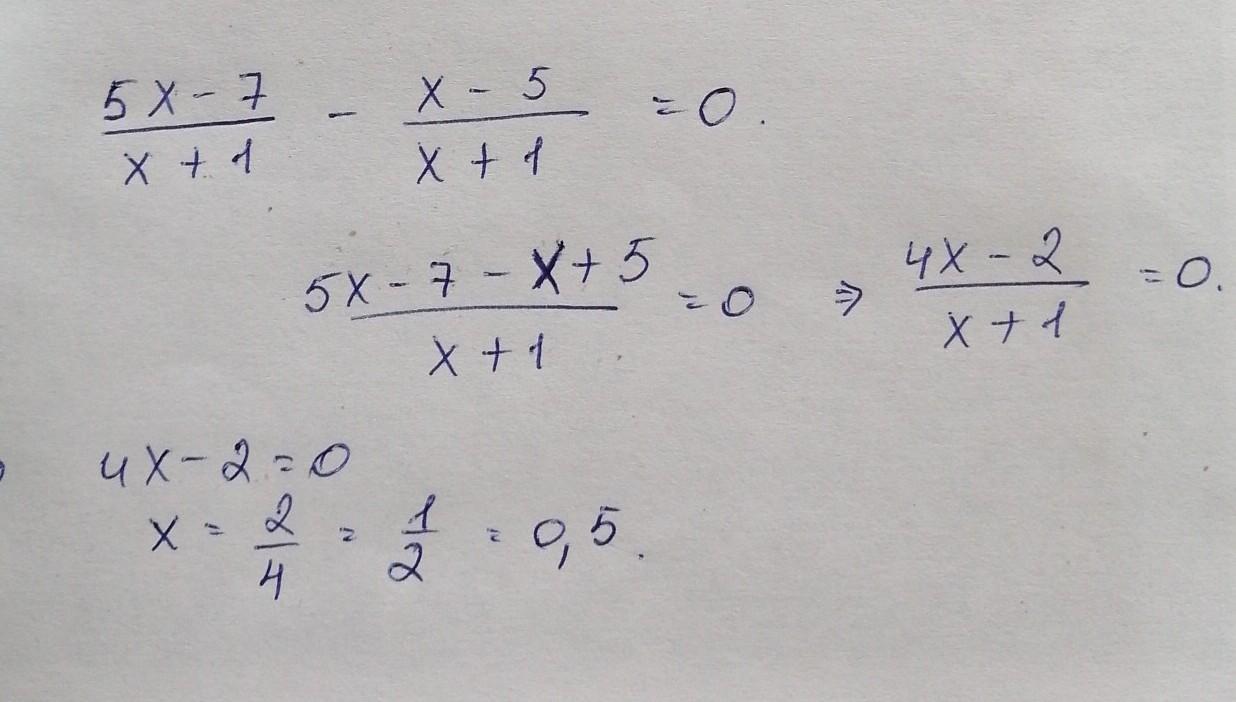 5x - 7 / x + 1 - x - 5 / x + 1 = 0.
5x - 7 - x + 5 / x + 1 = 0 ⇒ 4x - 2 / x + 1 = 0.
4x - 2 = 0
x = 2/4 = 1/2 = 0,5.